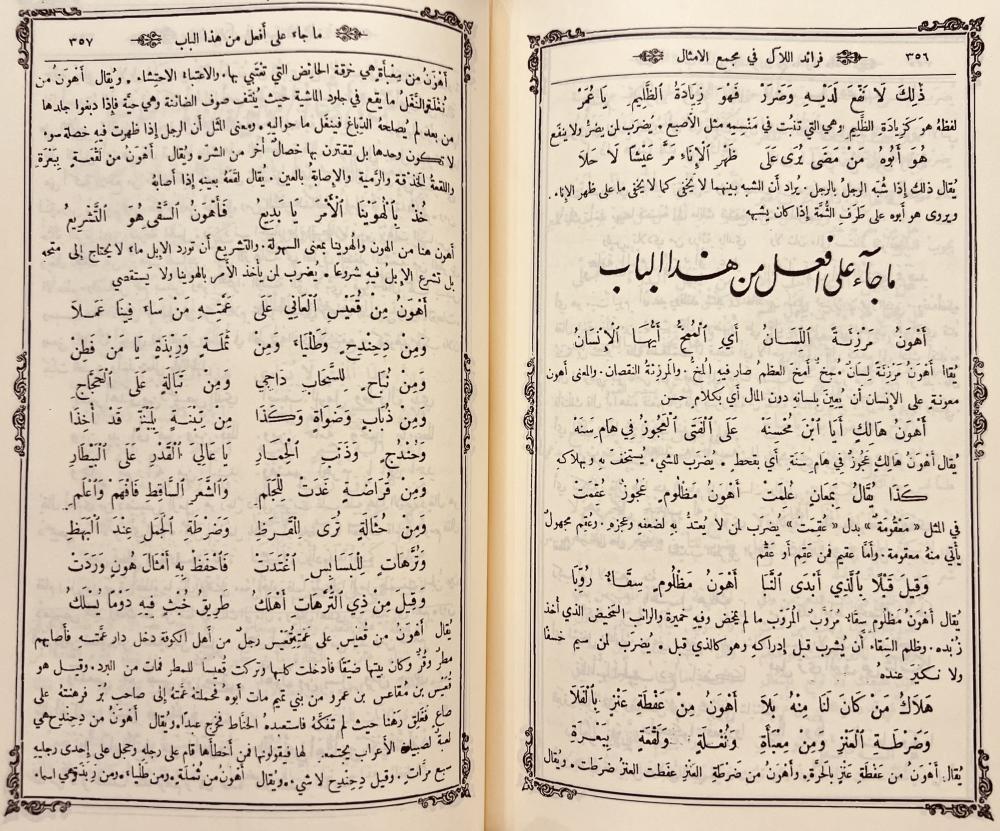 ٣٥٦ فرائد اللآل في مجمع الامثال
ذٰلِكَ لَا نَفْعَ لَدَيْهِ وَضَرَرْ فَهْوَ زِيَادَةُ الظَّلِيمِ يَا عُمَرْ
لفظهُ هو كَزِيادَةِ الظَّلِيم وهي التي تنبُت في مَنْسِمِهِ مثل الأصبع . يُضرَب لمن لا يضرُّ ولا ينفع
هُوَ أَبُوهُ مَنْ مَضَى يُرَى عَلَى ظَهْرِ الْإِنَاءِ مَرَّ عَيْشًا لَا حَلَا
يُقال ذلك إذا شُبّه الرجلُ بالرجل . يُراد أنّ الشبه بينهما لا يخفى كما لا يخفى ما على ظهر الإناء .
ويروى هو أبوه على طَرَفِ الثُّمَّة إذا كان يشبهه
ما جآء على افعل من هذا الباب
أَهْوَنُ مَرْزِئَةً اللِّسَانُ أَيِ الْمُمِخُّ أَيُّهَا الْإِنْسَانُ
يُقال أَهْوَنُ مَرْزِئَةً لِسانٌ مُمِخٌّ . أَمَخَّ العظمُ صار فيه المخُّ . والمرزِئة النقصان . والمعنى أهون
معونةٍ على الإنسان أن يُعينَ بلسانه دون المال أي بكلام حسن
أَهْوَنُ هَالِكٍ أَيَا ابْنَ مُحْسِنَهْ عَلَى الْفَتَى الْعَجُوزُ فِي عَامِ سَنَهْ
يُقال أَهْوَنُ هَالِكٍ عَجُوزٌ في عَامِ سَنَةٍ أي بقحطٍ . يُضرب للشيء يُستخفُّ به وبهلاكه
كَذَا يُقَالُ بِمَعَانٍ عُلِمَتْ أَهْوَنُ مَظْلُومٍ عَجُوزٌ عُقِمَتْ
في المثل « مَعْقُومَةٌ » بدل « عُقِمَتْ » يُضرَب لمن لا يُعتدُّ به لضعفه وعجزه . وعُقِم مجهولٌ
يأتي منهُ معقومة . وأمَّا عقيم فمن عَقِمَ أو عَقُمَ
وَقِيلَ قَبْلًا بِالَّذِي أَبْدَى النَّبَا أَهْوَنُ مَظْلُومٍ سِقَاءٌ رُوِّبَا
يُقال أَهْوَنُ مَظْلُومٍ سِقَاءٌ مُرَوَّبٌ . المُرَوَّب ما لم يمخض وفيه خميرة والرائب المخيض الذي أُخذ
زُبدُه . وظلم السِقَاء أن يُشرب قبل إدراكه وهو كالذي قبل . يُضرب لمن سيم خسفًا
ولا نكير عنده
هَلَاكُ مَنْ كَانَ لَنَا مِنْهُ بَلَا أَهْوَنُ مِنْ عَفْطَةِ عَنْزٍ بِالْفَلَا
وَضَرْطَةِ الْعَنْزِ وَمِنْ مِعْبَأَةِ وَثَغْلَةٍ وَلَقْعَةٍ بِبَعْرَةِ
يُقال أَهْوَنُ من عَفْطَةِ عَنْزٍ بالحَرَّةِ . وأَهْوَنُ من ضَرْطَةِ العَنْزِ عفطت العنز ضرطت . ويُقال
ما جاءَ على أفعل من هذا الباب ٣٥٧
أَهْوَنُ من مِعْبَأَةٍ هي خرقة الحائض التي تعتبي بها . والاعتباء الاحتشاء . ويُقال أَهْوَنُ من
من بعد لم يُصلحهُ الدِّباغ فينغل ما حواليه . ومعنى المثل أن الرجل إذا ظهرت فيه خصلة سوء
لا تكون وحدها بل تقترن بها خصالٌ أُخر من الشرّ . ويُقال أَهْوَنُ من لَقْعَةٍ بِبَعْرَةٍ
واللقعة الحذفة والرَّمية والإصابة بالعين . يُقال لقعَهُ بعينه إذا أصابهُ
خُذْ بِالْهُوَيْنَا الْأَمْرَ يَا بَدِيعُ فَأَهْوَنُ السَّقْيِ هُوَ التَّشْرِيعُ
أهون هنا من الهون والهوينا بمعنى السهولة . والتشريع أن تورد الإبل ماء لا يحتاج إلى متحه
بل تشرع الإبل فيهِ شروعًا . يُضرَب لمن يأخذ الأمر بالهوينا ولا يستقصي
أَهْوَنُ مِنْ قُعَيْسٍ الْعَانِي عَلَى عَمَّتِهِ مَنْ سَاءَ فِينَا عَمَلَا
وَمِنْ دِحِنْدِحٍ وَطَلْيَاءَ وَمِنْ ثَمَلَةٍ وَرِبْذَةٍ يَا مَنْ فَطِنْ
وَمِنْ نُبَاحٍ لِلسَّحَابِ دَاجِي وَمِنْ تَبَالَةٍ عَلَى الْحَجَّاجِ
وَمِنْ ذُبَابٍ وَضَوَاةٍ وَكَذَا مِنْ تِبْنَةٍ بِلَبِنَةٍ قَدْ أُخِذَا
وَحُنْدُجٍ وَذَنَبِ الْحِمَارِ يَا عَالِيَ الْقَدْرِ عَلَى الْبَيْطَارِ
وَمِنْ قُرَاضَةٍ غَدَتْ لِلْجَلَمِ وَالشَّعَرِ السَّاقِطِ فَافْهَمْ وَاعْلَمِ
وَمِنْ حُثَالَةٍ تُرَى لِلْقَرَظِ وَضَرْطَةِ الْجَمَلِ عِنْدَ الْبَهَظِ
وَتُرَّهَاتٍ لِلْبَسَابِسِ اغْتَدَتْ فَاحْفَظْ بِهِ أَمْثَالَ هُونٍ وَرَدَتْ
وَقِيلَ مِنْ ذِي التُّرَّهَاتِ أَهْلَكُ طَرِيقُ خُبْثٍ فِيهِ دَوْمًا يُسْلَكُ
يُقال أَهْوَنُ من قُعَيْسٍ على عَمَّتِهِ قُعَيس رجلٌ من أهل الكوفة دخل دار عمَّته فأصابهم
مطرٌ وقرٌّ وكان بيتها ضيّقًا فأدخلت كلبها وتركت قُعيسًا للمطر فمات من البرد . وقيل هو
قُعَيس بن مُقاعس بن عمرو من بني تميم مات أبوه فحملته عمَّتهُ إلى صاحب بُرّ فرهنتهُ على
صاع فغَلِق رهنها حيث لم تفكَّهُ فاستعبدهُ الحنَّاط فخرج عبدًا . ويُقال أَهْوَنُ من دِحِنْدِحٍ هي
لعبةٌ لصبيان الأعراب يجتمعون لها فيقولونها فمن أخطأها قام على رجله وحجل على إحدى رجليه
سبع مرّات . وقيل دِحِنْدِح لا شيء . ويُقال أَهْوَنُ من ثَمَلَةٍ . ومن طَلْياء . ومن رِبْذَةٍ هي اسماء